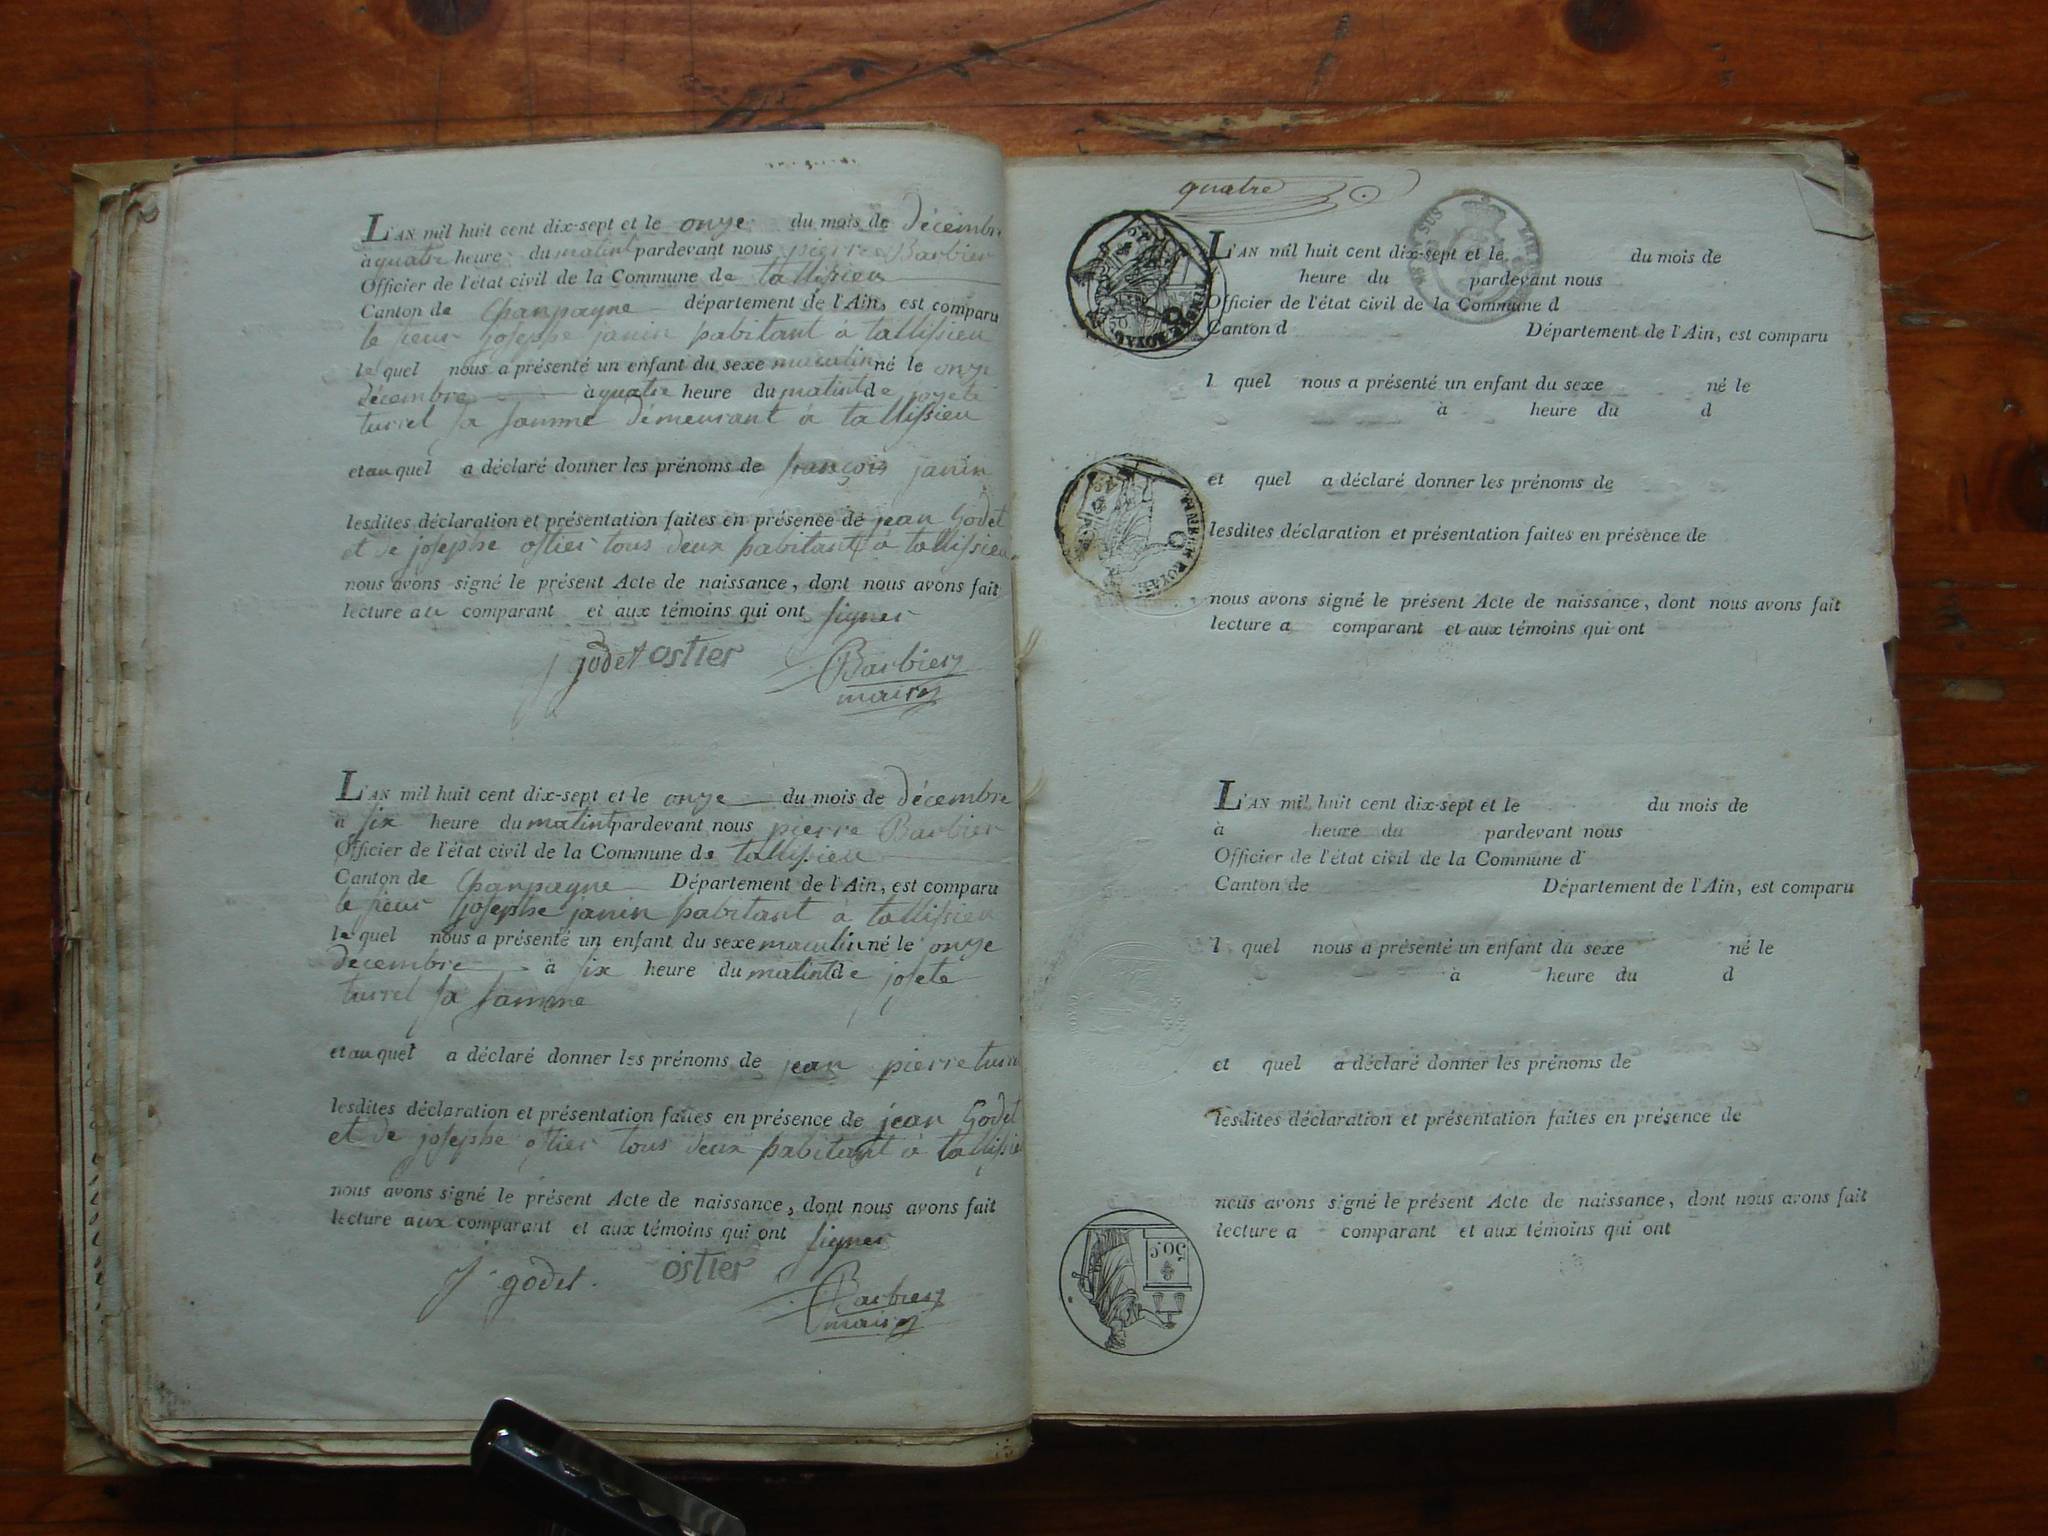 L'AN mil huit cent dix-sept et le onze du mois de décembre
à quatre heure du matint pardevant nous pierre Barbier
Officier de l'état civil de la Commune de tallissieu
Canton de Champagne département de l'Ain, est comparu
le sieur Josephe janin habitant à tallissieu
le quel nous a présenté un enfant du sexe masculin né le onze
décembre à quatre heure du matint de josete
turrel sa famme démeurant à tallissieu
et au quel a déclaré donner les prénoms de françois janin
lesdites déclaration et présentation faites en présence de jean Godet
et de josephe ostier tous deux habitant à tallissieu
nous avons signé le présent Acte de naissance, dont nous avons fait
lecture au comparant et aux témoins qui ont signer
j godet ostier Barbier
maire
L'AN mil huit cent dix-sept et le onze du mois de décembre
à six heure du matint pardevant nous pierre Barbier
Officier de l'état civil de la Commune de tallissieu
Canton de Champagne Département de l'Ain, est comparu
le sieur Josephe janin habitant à tallissieu
le quel nous a présenté un enfant du sexe masculin né le onze
decembre à six heure du matint de josete
turrel sa famme
et au quel a déclaré donner les prénoms de jean pierre
lesdites déclaration et présentation faites en présence de jean Godet
et de josephe ostier tous deux habitant à tallissieu
nous avons signé le présent Acte de naissance, dont nous avons fait
lecture aux comparant et aux témoins qui ont signer
J. godet. ostier Barbier
maire
quatre
L'AN mil huit cent dix-sept et le du mois de
heure du pardevant nous
Officier de l'état civil de la Commune d
Canton d Département de l'Ain, est comparu
l quel nous a présenté un enfant du sexe né le
à heure du d
et quel a déclaré donner les prénoms de
lesdites déclaration et présentation faites en présence de
nous avons signé le présent Acte de naissance, dont nous avons fait
lecture a comparant et aux témoins qui ont
L'AN mil huit cent dix-sept et le du mois de
à heure du pardevant nous
Officier de l'état civil de la Commune d
Canton de Département de l'Ain, est comparu
l quel nous a présenté un enfant du sexe né le
à heure du d
et quel a déclaré donner les prénoms de
lesdites déclaration et présentation faites en présence de
nous avons signé le présent Acte de naissance, dont nous avons fait
lecture a comparant et aux témoins qui ont
50.C